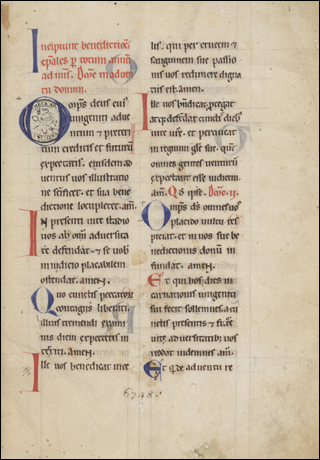 Incipiunt benedictiões
epales p totum annũ
ad mis. Dñic in aduen
tu domini.
Omps deus cuiꝰ
unigeniti adue
ntum & preteri
tum creditis et futurũ
expectatis. eiusdem ad
uentus uos illustratio
ne scificet. et sua bene
dictione locupletet. am̃.
In presenti uite stadio
uos ab om̃i aduersita
te defendat. & se uob
in iudicio placabilem
ostendat. amen.
Quo cunctis peccatorũ
contagiis liberati.
illius tremendi exami
nis diem expectetis in
territi. Amen.
Ille uos benedicat
lis. qui per crucem &
sanguinem sue passio
nis uos redimere digna
tus est. amen.
Ille uos bñdicat.
defendat cunctis dieb
uite ure. et perducat
in regnum glẽ sue.
omnes gentes uenturũ
expectant esse iudicem.
am̃. Qs ipse. Dñic. ii.
Omps ds omnes uos
placido uultu res
piciat. et in uos sue be
nedictionis donũ in
fundat. amen.
Et qui hos dies in
carnationis unigeniti
sui fecit sollemnes. a cũ
nctis presentis & future
uite aduersitatib uos
reddat indemnes. am̃.
Et q de aduentu re
6748